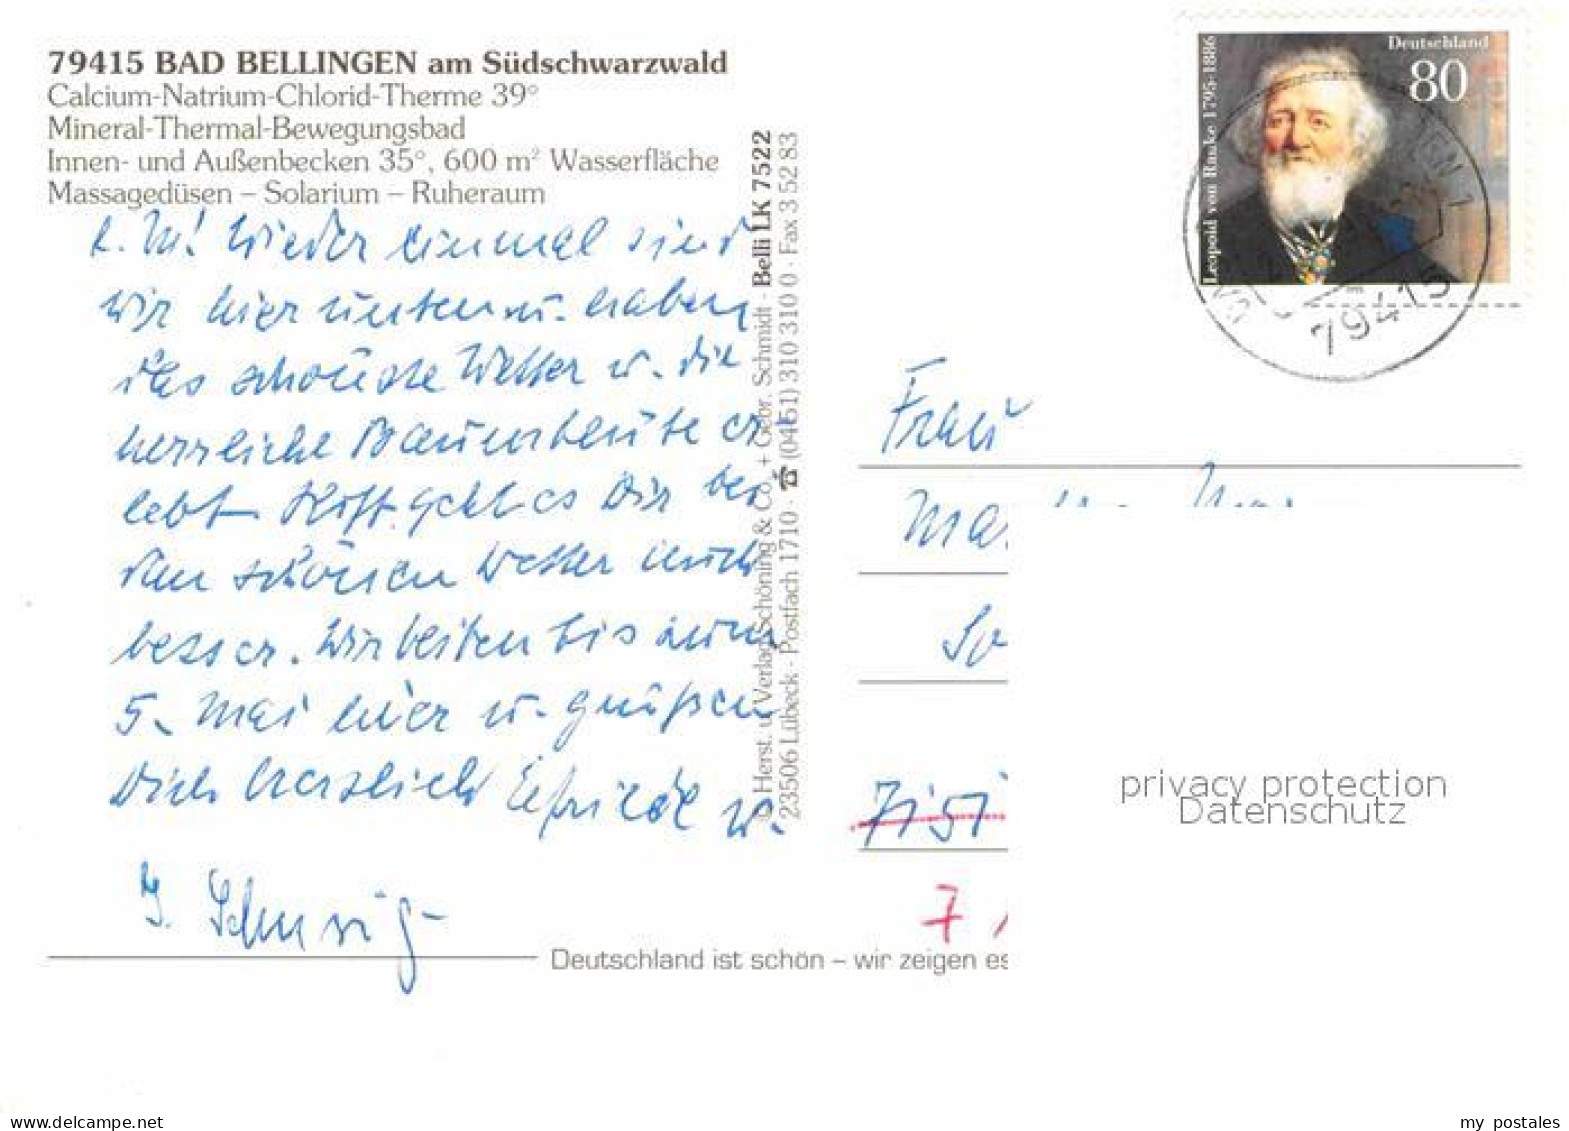 79415 BAD BELLINGEN am Südschwarzwald
Calcium-Natrium-Chlorid-Therme 39°
Mineral-Thermal-Bewegungsbad
Innen- und Außenbecken 35°, 600 m² Wasserfläche
Massagedüsen – Solarium – Ruheraum
L. M! Wieder einmal sind
wir hier unten u. haben
das schönste Wetter u. die
herrliche Baumblüte er
lebt. Hoff. geht es Dir bei
dem schönen Wetter auch
besser. Wir bleiben bis zum
5. Mai hier u. grüßen
Dich herzlich Elfriede u.
J.
© Herst. u. Verlag Schöning & Co. + Gebr. Schmidt · Belli LK 7522
23506 Lübeck · Postfach 1710 · ☎ (0451) 310 310 0 · Fax 3 52 83
Deutschland ist schön – wir zeigen es
Leopold von Ranke 1795-1886
Deutschland
80
79415
Frau
7
privacy protection
Datenschutz
www.delcampe.net
my postales